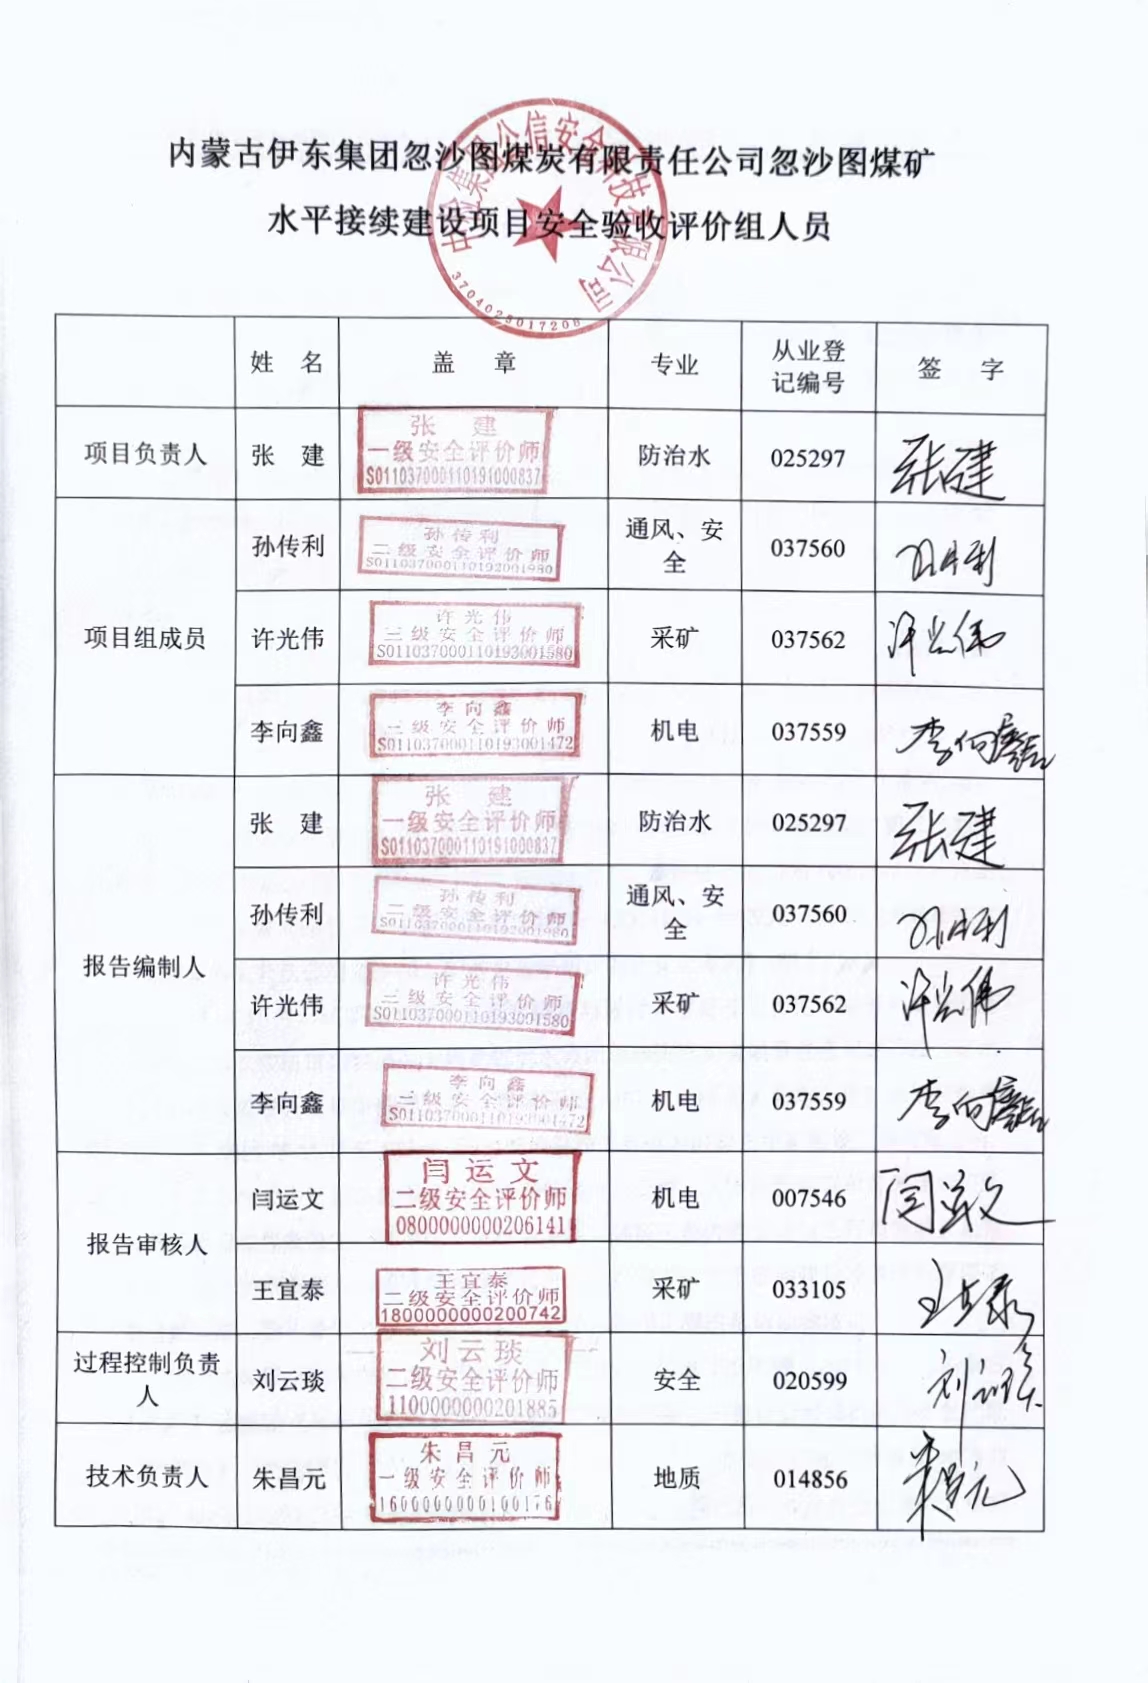 内蒙古伊东集团忽沙图煤炭有限责任公司忽沙图煤矿
水平接续建设项目安全验收评价组人员
公信安全科技有限公司
3704029017208
姓 名 盖 章 专业 从业登记编号 签 字
项目负责人 张 建 防治水 025297 张建
张 建
一级安全评价师
S011037000110191000837
项目组成员
孙传利 通风、安全 037560
孙传利
二级安全评价师
S011037000110192001980
许光伟 采矿 037562 许光伟
许光伟
三级安全评价师
S011037000110193001580
李向鑫 机电 037559 李向鑫
李向鑫
三级安全评价师
S011037000110193001472
报告编制人
张 建 防治水 025297 张建
张 建
一级安全评价师
S011037000110191000837
孙传利 通风、安全 037560
孙传利
二级安全评价师
S011037000110192001980
许光伟 采矿 037562 许光伟
许光伟
三级安全评价师
S011037000110193001580
李向鑫 机电 037559 李向鑫
李向鑫
三级安全评价师
S011037000110193001472
报告审核人
闫运文 机电 007546 闫运文
闫运文
二级安全评价师
0800000000206141
王宜泰 采矿 033105 王宜泰
王宜泰
二级安全评价师
1800000000200742
过程控制负责人 刘云琰 安全 020599 刘云琰
刘云琰
二级安全评价师
1100000000201885
技术负责人 朱昌元 地质 014856 朱昌元
朱昌元
一级安全评价师
1600000000100176